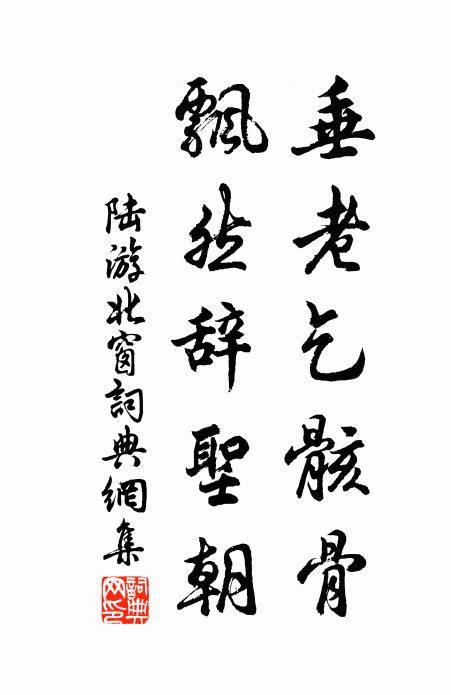 垂老乞骸骨
飄然辞聖朝
陆游北窗詞典網集
詞典网印